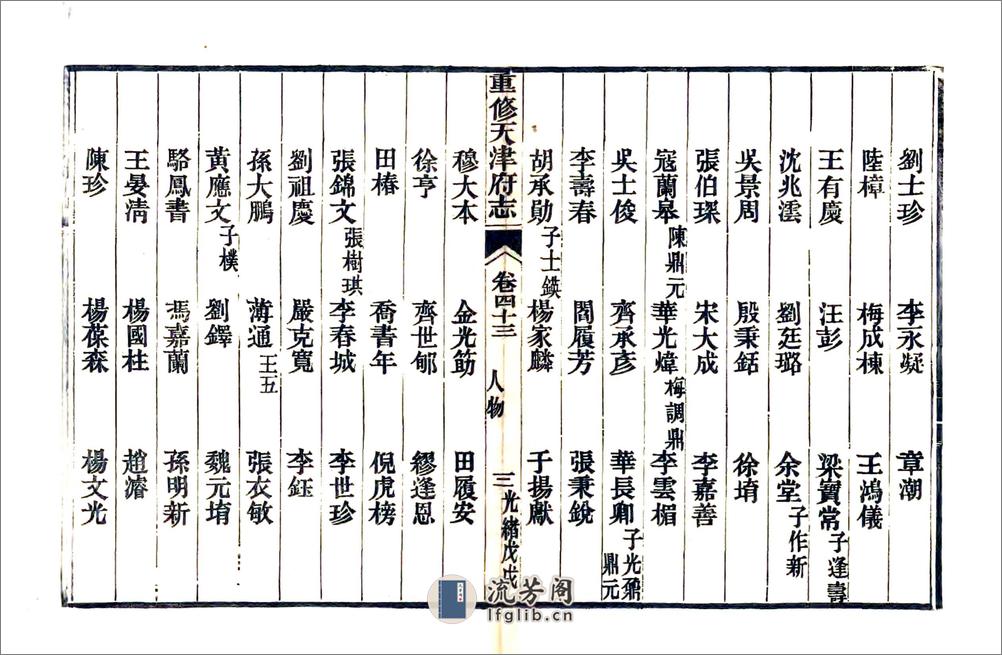 劉士珍 李永凝 章潮
陸樟 梅成棟 王鴻儀
王有慶 汪彭 梁寶常 子逢壽
沈兆澐 劉廷璐 余堂 子作新
吳景周 殷秉銛 徐堉
張伯琛 宋大成 李嘉善
寇蘭皋 陳鼎元 華光煒 梅調鼎 李雲楣
吳士俊 齊承彥 華長卿 子光鼐 鼎元
李壽春 閻履芳 張秉銳
胡承勛 子士鍈 楊家麟 于揚獻
重修天津府志 卷四十三 人物 三 光緒戊戌
穆大本 金光筯 田履安
徐亨 齊世郇 繆逢恩
田椿 喬書年 倪虎榜
張錦文 張樹琪 李春城 李世珍
劉祖慶 嚴克寬 李鈺
孫大鵬 薄通 王五 張衣敏
黃應文 子樸 劉鐸 魏元堉
駱鳳書 馮嘉蘭 孫明新
王晏淸 楊國柱 趙濬
陳珍 楊葆森 楊文光
流芳阁
lfglib.cn